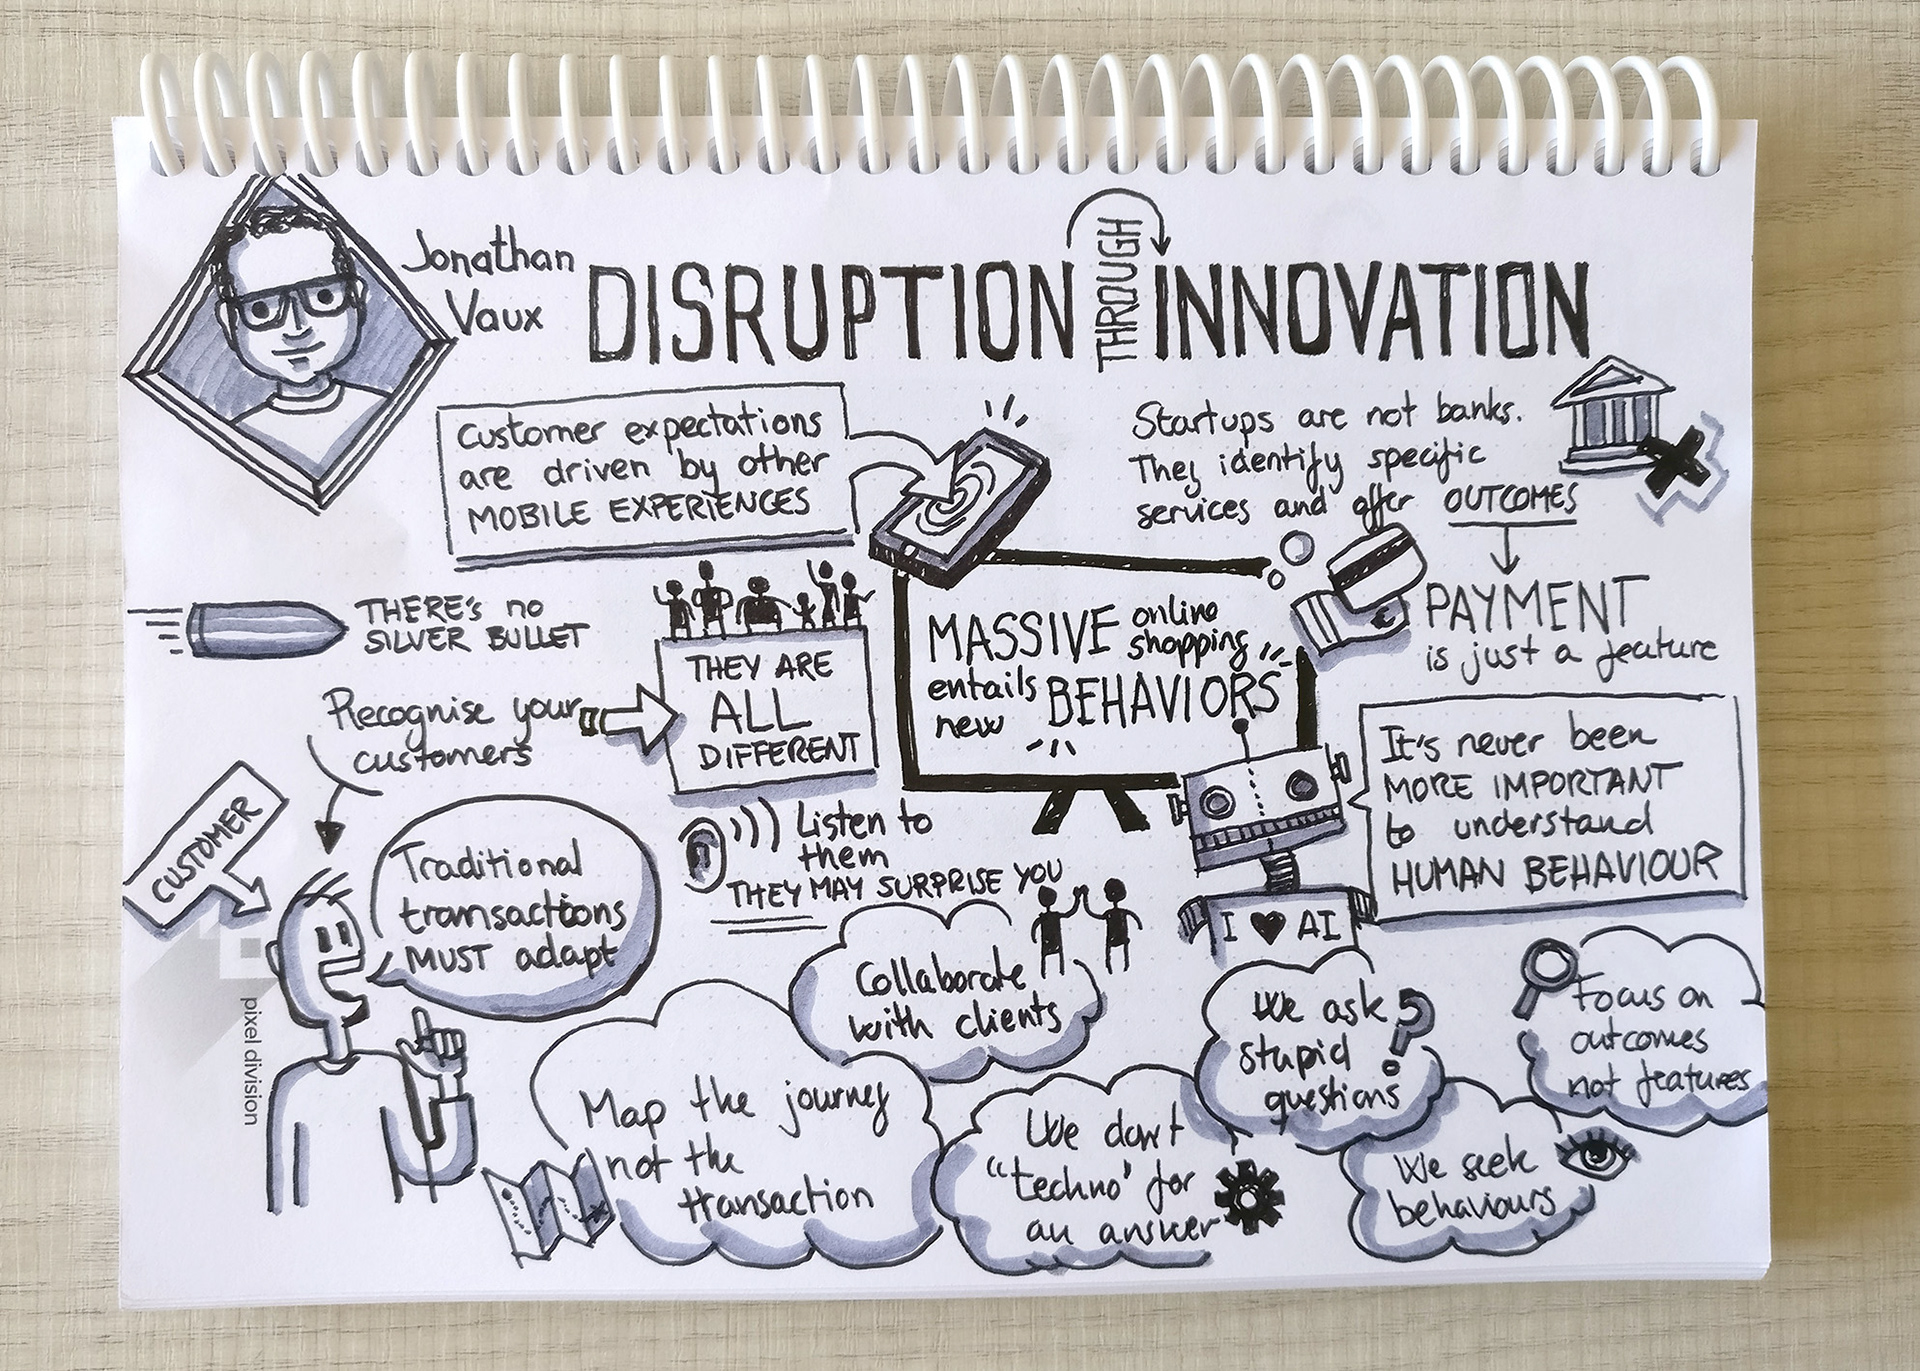 Jonathan
Vaux
DISRUPTION THROUGH INNOVATION
Customer expectations
are driven by other
MOBILE EXPERIENCES
Startups are not banks.
They identify specific
services and offer OUTCOMES
PAYMENT
is just a feature
THERE'S no
SILVER BULLET
Recognise your
customers
THEY ARE
ALL
DIFFERENT
MASSIVE online
shopping
entails
new BEHAVIORS
It's never been
MORE IMPORTANT
to understand
HUMAN BEHAVIOUR
I ♥ AI
CUSTOMER
Traditional
transactions
MUST adapt
Listen to
them
THEY MAY SURPRISE YOU
Collaborate
with clients
Map the journey
not the
transaction
We don't
"techno" for
an answer
We ask
stupid
questions
?
We seek
behaviours
Focus on
outcomes
not features
pixel division